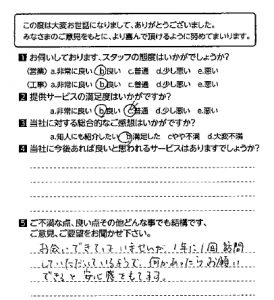 この度は大変お世話になりまして、ありがとうございました。
みなさまのご意見をもとに、より喜んで頂けるように努めてまいります。
1 お伺いしております、スタッフの態度はいかがでしょうか?
(営業) a.非常に良い b.良い c.普通 d.少し悪い e.悪い
(工事) a.非常に良い b.良い c.普通 d.少し悪い e.悪い
2 提供サービスの満足度はいかがですか?
a.非常に良い b.良い c.普通 d.少し悪い e.悪い
3 当社に対する総合的なご感想はいかがですか?
a.知人にも紹介したい b.満足した c.やや不満 d.大変不満
4 当社に今後あれば良いと思われるサービスはありますでしょうか?
5 ご不満な点、良い点その他どんな事でも結構です、
ご意見、ご要望をお聞かせ下さい。
お会いできていませんが、1年に1回訪問
していただいているようで、何かあったらお願い
できると安心感をもてます。